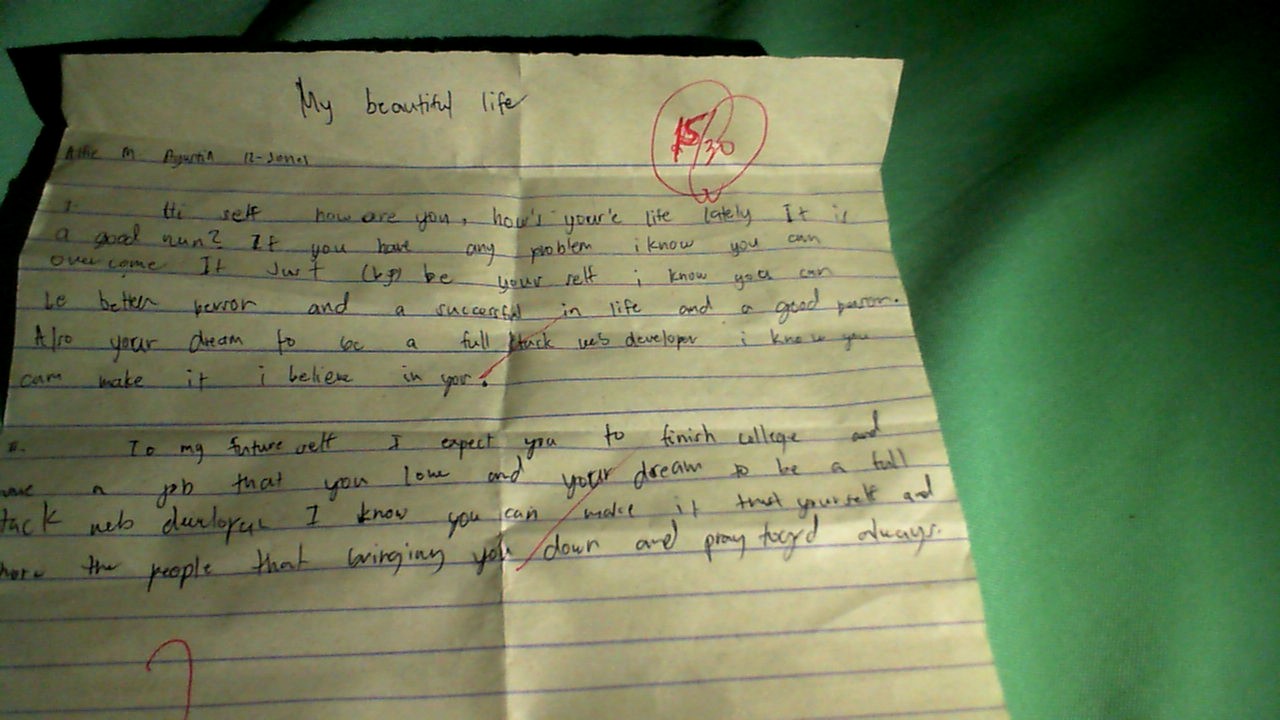 My beautiful life
15/30
M. Agustin 12-Jones
I. Hi self how are you, how's your'e life lately It is
a good nun? If you have any problem i know you can
overcome It Just be your self i know you can
be better person and a successful in life and a good person.
Also your dream to be a full stack web developer i know you
cam make it i believe in your.
II. To my future self I expect you to finish college and
a job that you love and your dream to be a full
tack web I know you can make it trust yourself and
the people that bringing you down and pray to god always.